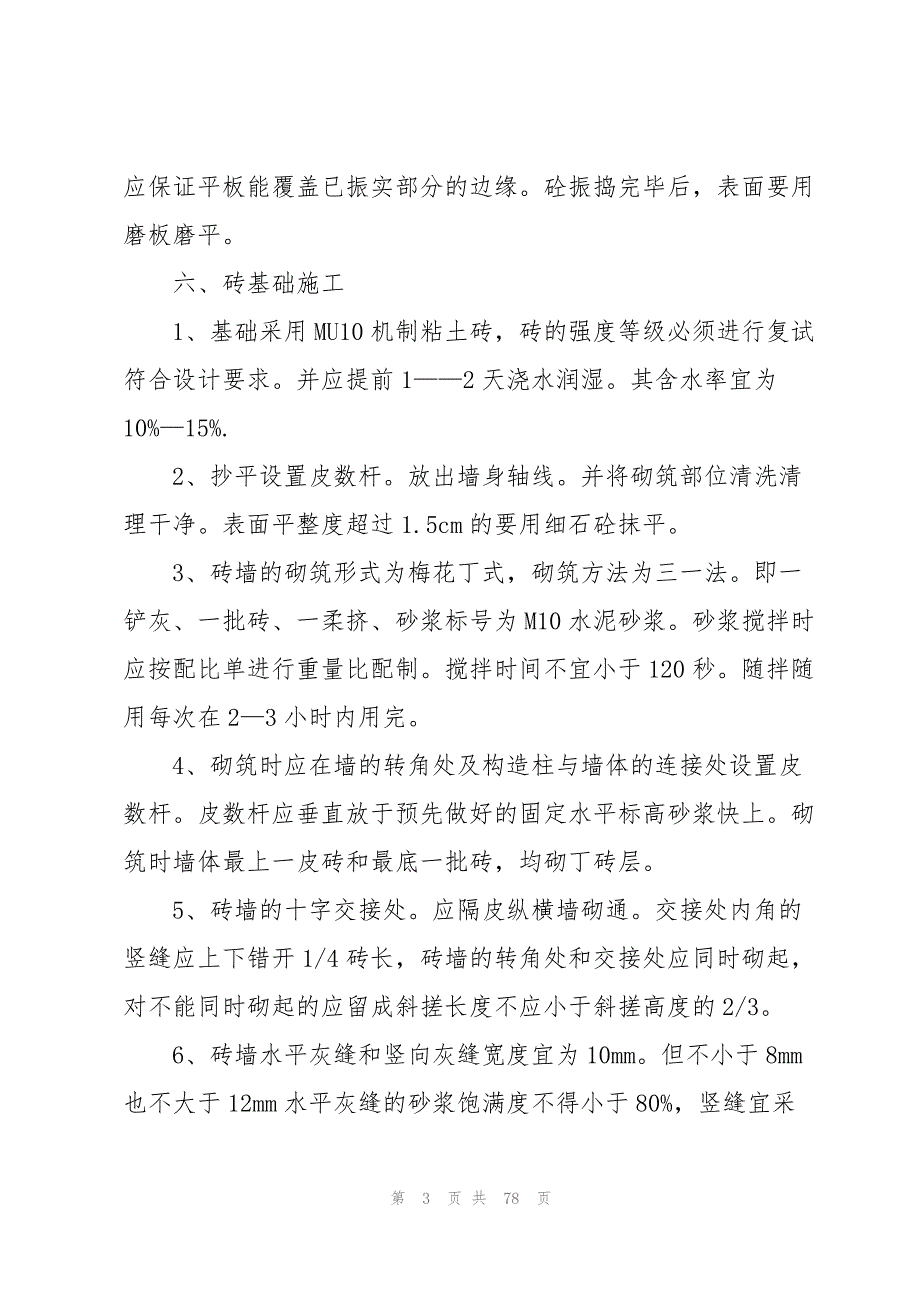 应保证平板能覆盖已振实部分的边缘。砼振捣完毕后，表面要用
磨板磨平。
六、砖基础施工
1、基础采用 MU10 机制粘土砖，砖的强度等级必须进行复试
符合设计要求。并应提前 1——2 天浇水润湿。其含水率宜为
10%—15%.
2、抄平设置皮数杆。放出墙身轴线。并将砌筑部位清洗清
理干净。表面平整度超过 1.5cm 的要用细石砼抹平。
3、砖墙的砌筑形式为梅花丁式，砌筑方法为三一法。即一
铲灰、一批砖、一柔挤、砂浆标号为 M10 水泥砂浆。砂浆搅拌时
应按配比单进行重量比配制。搅拌时间不宜小于 120 秒。随拌随
用每次在 2—3 小时内用完。
4、砌筑时应在墙的转角处及构造柱与墙体的连接处设置皮
数杆。皮数杆应垂直放于预先做好的固定水平标高砂浆快上。砌
筑时墙体最上一皮砖和最底一批砖，均砌丁砖层。
5、砖墙的十字交接处。应隔皮纵横墙砌通。交接处内角的
竖缝应上下错开 1/4 砖长，砖墙的转角处和交接处应同时砌起，
对不能同时砌起的应留成斜搓长度不应小于斜搓高度的 2/3。
6、砖墙水平灰缝和竖向灰缝宽度宜为 10mm。但不小于 8mm
也不大于 12mm 水平灰缝的砂浆饱满度不得小于 80%，竖缝宜采
第 3 页 共 78 页